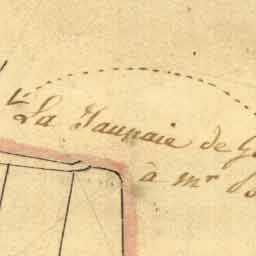 La Jaunaie de G
à mr